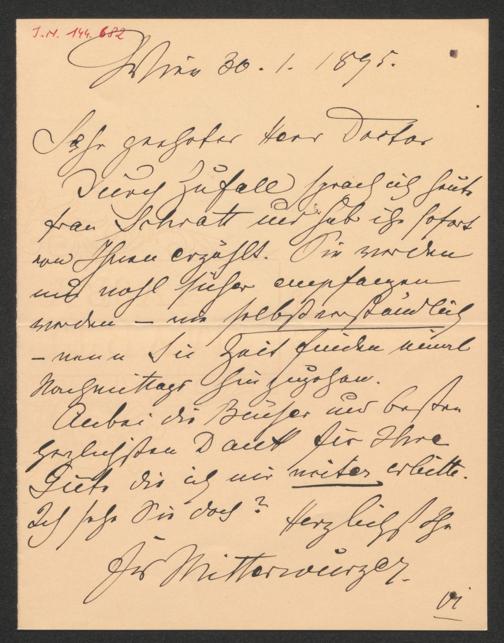 J.N. 144.682
Wien 30. 1. 1895.
Sehr geehrter Herr Doctor
Durch Zufall sprach ich heute
Frau Schratt und hab ihr sofort
von Ihnen erzählt. Sie werden
nur wohl empfangen
werden – wie selbstverständlich
– wenn Sie Zeit finden einmal
Nachmittags hinzugehen.
Anbei die Bücher und besten
herzlichsten Dank für Ihre
Güte die ich mir weiter erbitte.
Ich sehe Sie doch? Herzlichst Ihr
Mitterwurzer